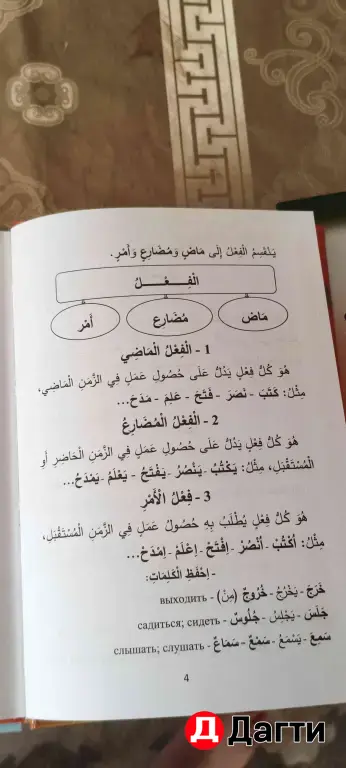 يَنْقَسِمُ الْفِعْلُ إِلَى مَاضٍ وَمُضَارِعٍ وَأَمْرٍ.
الْفِــعْــــلُ
مَاضٍ
مُضَارِع
أَمْر
1 - الْفِعْلُ الْمَاضِي
هُوَ كُلُّ فِعْلٍ يَدُلُّ عَلَى حُصُولِ عَمَلٍ فِي الزَّمَنِ الْمَاضِي،
مِثْلُ: كَتَبَ - نَصَرَ - فَتَحَ - عَلِمَ - مَدَحَ...
2 - الْفِعْلُ الْمُضَارِعُ
هُوَ كُلُّ فِعْلٍ يَدُلُّ عَلَى حُصُولِ عَمَلٍ فِي الزَّمَنِ الْحَاضِرِ أَوِ
الْمُسْتَقْبَلِ، مِثْلُ: يَكْتُبُ - يَنْصُرُ - يَفْتَحُ - يَعْلَمُ - يَمْدَحُ...
3 - فِعْلُ الْأَمْرِ
هُوَ كُلُّ فِعْلٍ يُطْلَبُ بِهِ حُصُولُ عَمَلٍ فِي الزَّمَنِ الْمُسْتَقْبَلِ،
مِثْلُ: اُكْتُبْ - اُنْصُرْ - اِفْتَحْ - اِعْلَمْ - اِمْدَحْ...
- اِحْفَظِ الْكَلِمَاتِ:
خَرَجَ - يَخْرُجُ - خُرُوجٌ (مِنْ) - выходить
جَلَسَ - يَجْلِسُ - جُلُوسٌ - садиться; сидеть
سَمِعَ - يَسْمَعُ - سَمْعٌ - سَمَاعٌ - слышать; слушать
4
Дагти